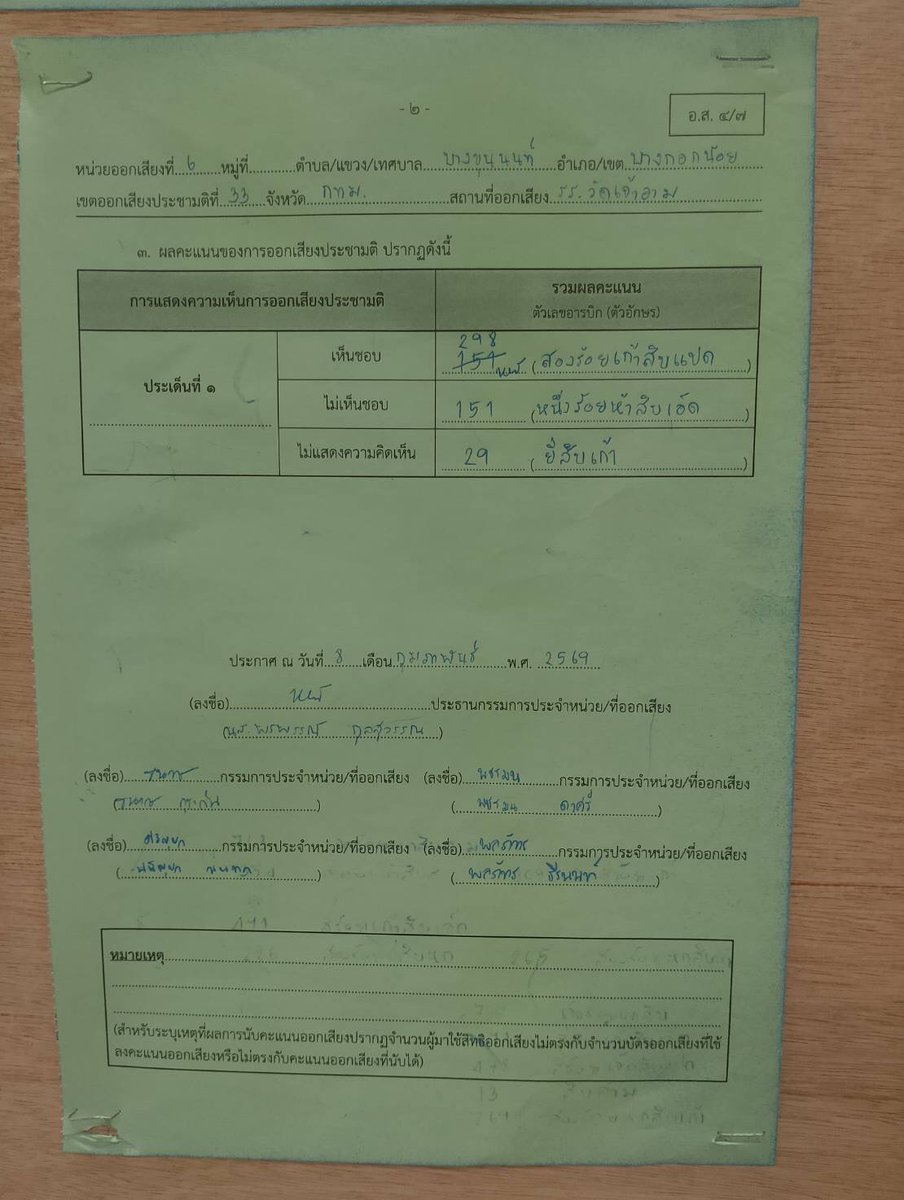 - ๒ -
อ.ส. ๔/๗
หน่วยออกเสียงที่ 6 หมู่ที่ ตำบล/แขวง/เทศบาล บางขุนนนท์ อำเภอ/เขต บางกอกน้อย
เขตออกเสียงประชามติที่ 33 จังหวัด กทม. สถานที่ออกเสียง รร.วัดเจ้าอาม
๓. ผลคะแนนของการออกเสียงประชามติ ปรากฏดังนี้
การแสดงความเห็นการออกเสียงประชามติ รวมผลคะแนน
ตัวเลขอารบิก (ตัวอักษร)
ประเด็นที่ ๑
เห็นชอบ 298 151 (สองร้อยเก้าสิบแปด)
ไม่เห็นชอบ 151 (หนึ่งร้อยห้าสิบเอ็ด)
ไม่แสดงความคิดเห็น 29 (ยี่สิบเก้า)
ประกาศ ณ วันที่ 8 เดือน กุมภาพันธ์ พ.ศ. 2569
(ลงชื่อ) ประธานกรรมการประจำหน่วย/ที่ออกเสียง
(นส. พรพรรณ กุลสุวรรณ)
(ลงชื่อ) กรรมการประจำหน่วย/ที่ออกเสียง (ลงชื่อ) พชรมน กรรมการประจำหน่วย/ที่ออกเสียง
(พชรมน)
(ลงชื่อ) กรรมการประจำหน่วย/ที่ออกเสียง (ลงชื่อ) พลภัทร กรรมการประจำหน่วย/ที่ออกเสียง
(พลภัทร ธีรนนท์)
หมายเหตุ
(สำหรับระบุเหตุที่ผลการนับคะแนนออกเสียงปรากฏจำนวนผู้มาใช้สิทธิออกเสียงไม่ตรงกับจำนวนบัตรออกเสียงที่ใช้
ลงคะแนนออกเสียงหรือไม่ตรงกับคะแนนออกเสียงที่นับได้)